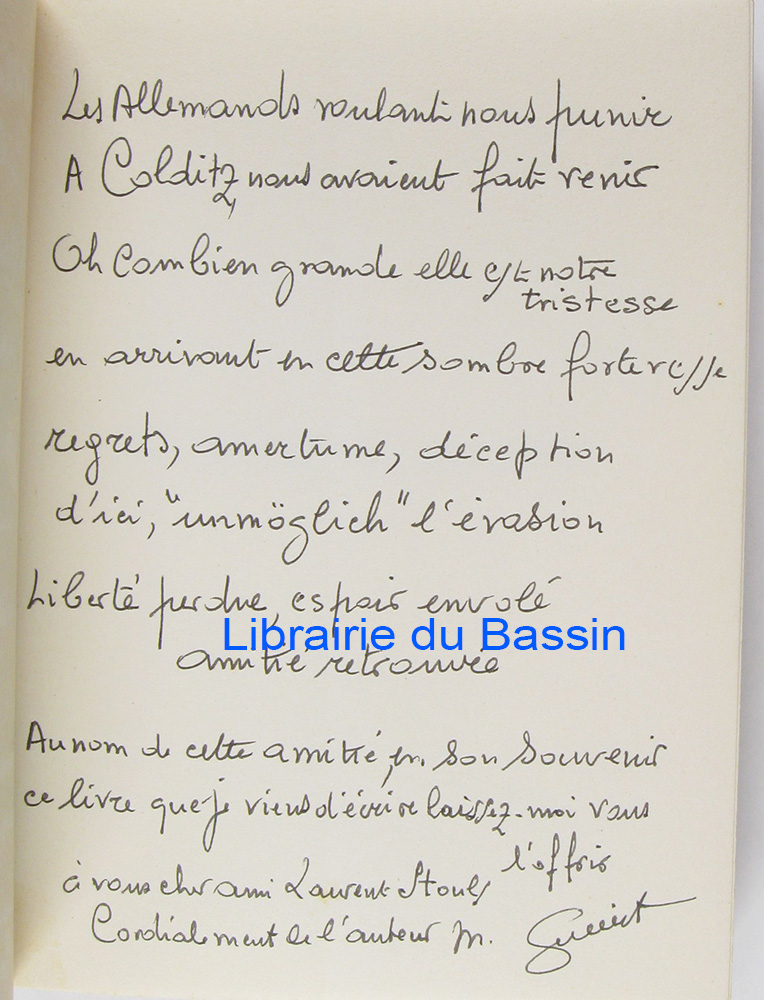 Les Allemands voulant nous punir
A Colditz, nous avaient fait venir
Oh Combien grande elle est notre
tristesse
en arrivant en cette sombre forteresse
regrets, amertume, déception
d'ici, "unmöglich" l'évasion
Liberté perdue, espoir envolé
Librairie du Bassin
amitié retrouvée
Au nom de cette amitié, en son Souvenir
ce livre que je viens d'écrire laissez-moi vous
l'offrir
à vous cher ami Laurent
Cordialement de l'auteur M.